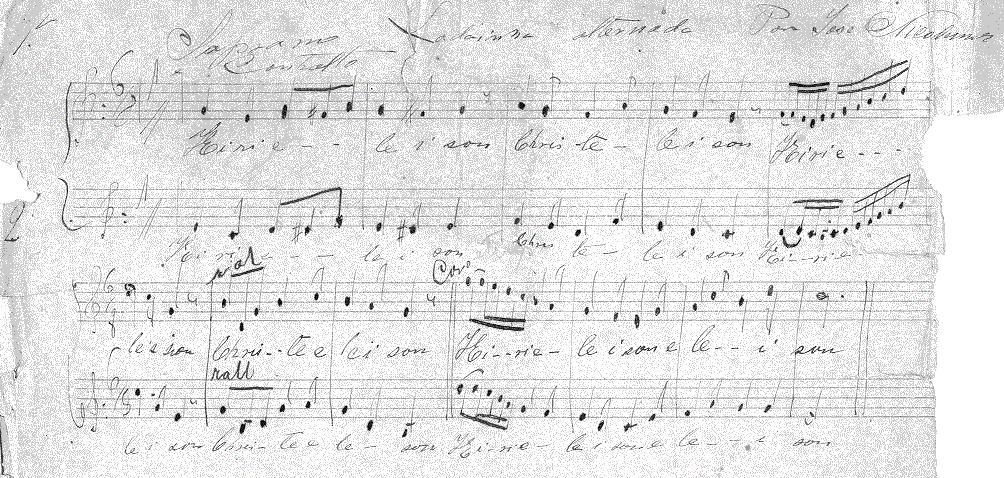 Ladainha alternada Por Jose
Soprano
Contralto
Kirie - - le i son Chris-te - le i son Kirie - - -
Kirie - - - le i son Chris te - le i son Ki--rie -
rall Coro
leison Chri--te e lei son Ki--rie- le i son e le-- i son
rall
le i son Chris-te e le - son Ki-rie- le i son e le-- i son